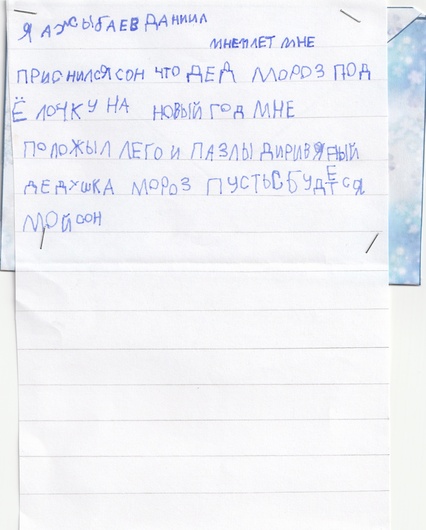 Я АЖСЫБАЕВ ДАНИИЛ
МНЕ ПЛЕТ МНЕ
ПРИСНИЛСЯ СОН ЧТО ДЕД МОРОЗ ПОД
ЁЛОЧКУ НА НОВЫЙ ГОД МНЕ
ПОЛОЖЫЛ ЛЕГО И ПАЗЛЫ ДИРИВЯНЫЙ
ДЕДУШКА МОРОЗ ПУСТЬ СБУДЕТСЯ
МОЙ СОН